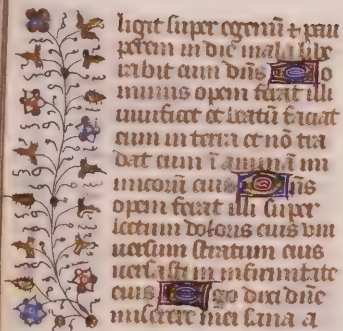 ligit super egenū ⁊ pau
perem in die mala libe
rabit eum dn̄s Do
minus opem ferat illi
uiuificet et beatū faciat
eum in terra et nō tra
dat eum ī animā ini
micorū eius Dn̄s
opem ferat illi super
lectum doloris eius vni
uersum stratum eius
uersasti in infirmitate
eius Ego dixi dn̄e
miserere mei sana a